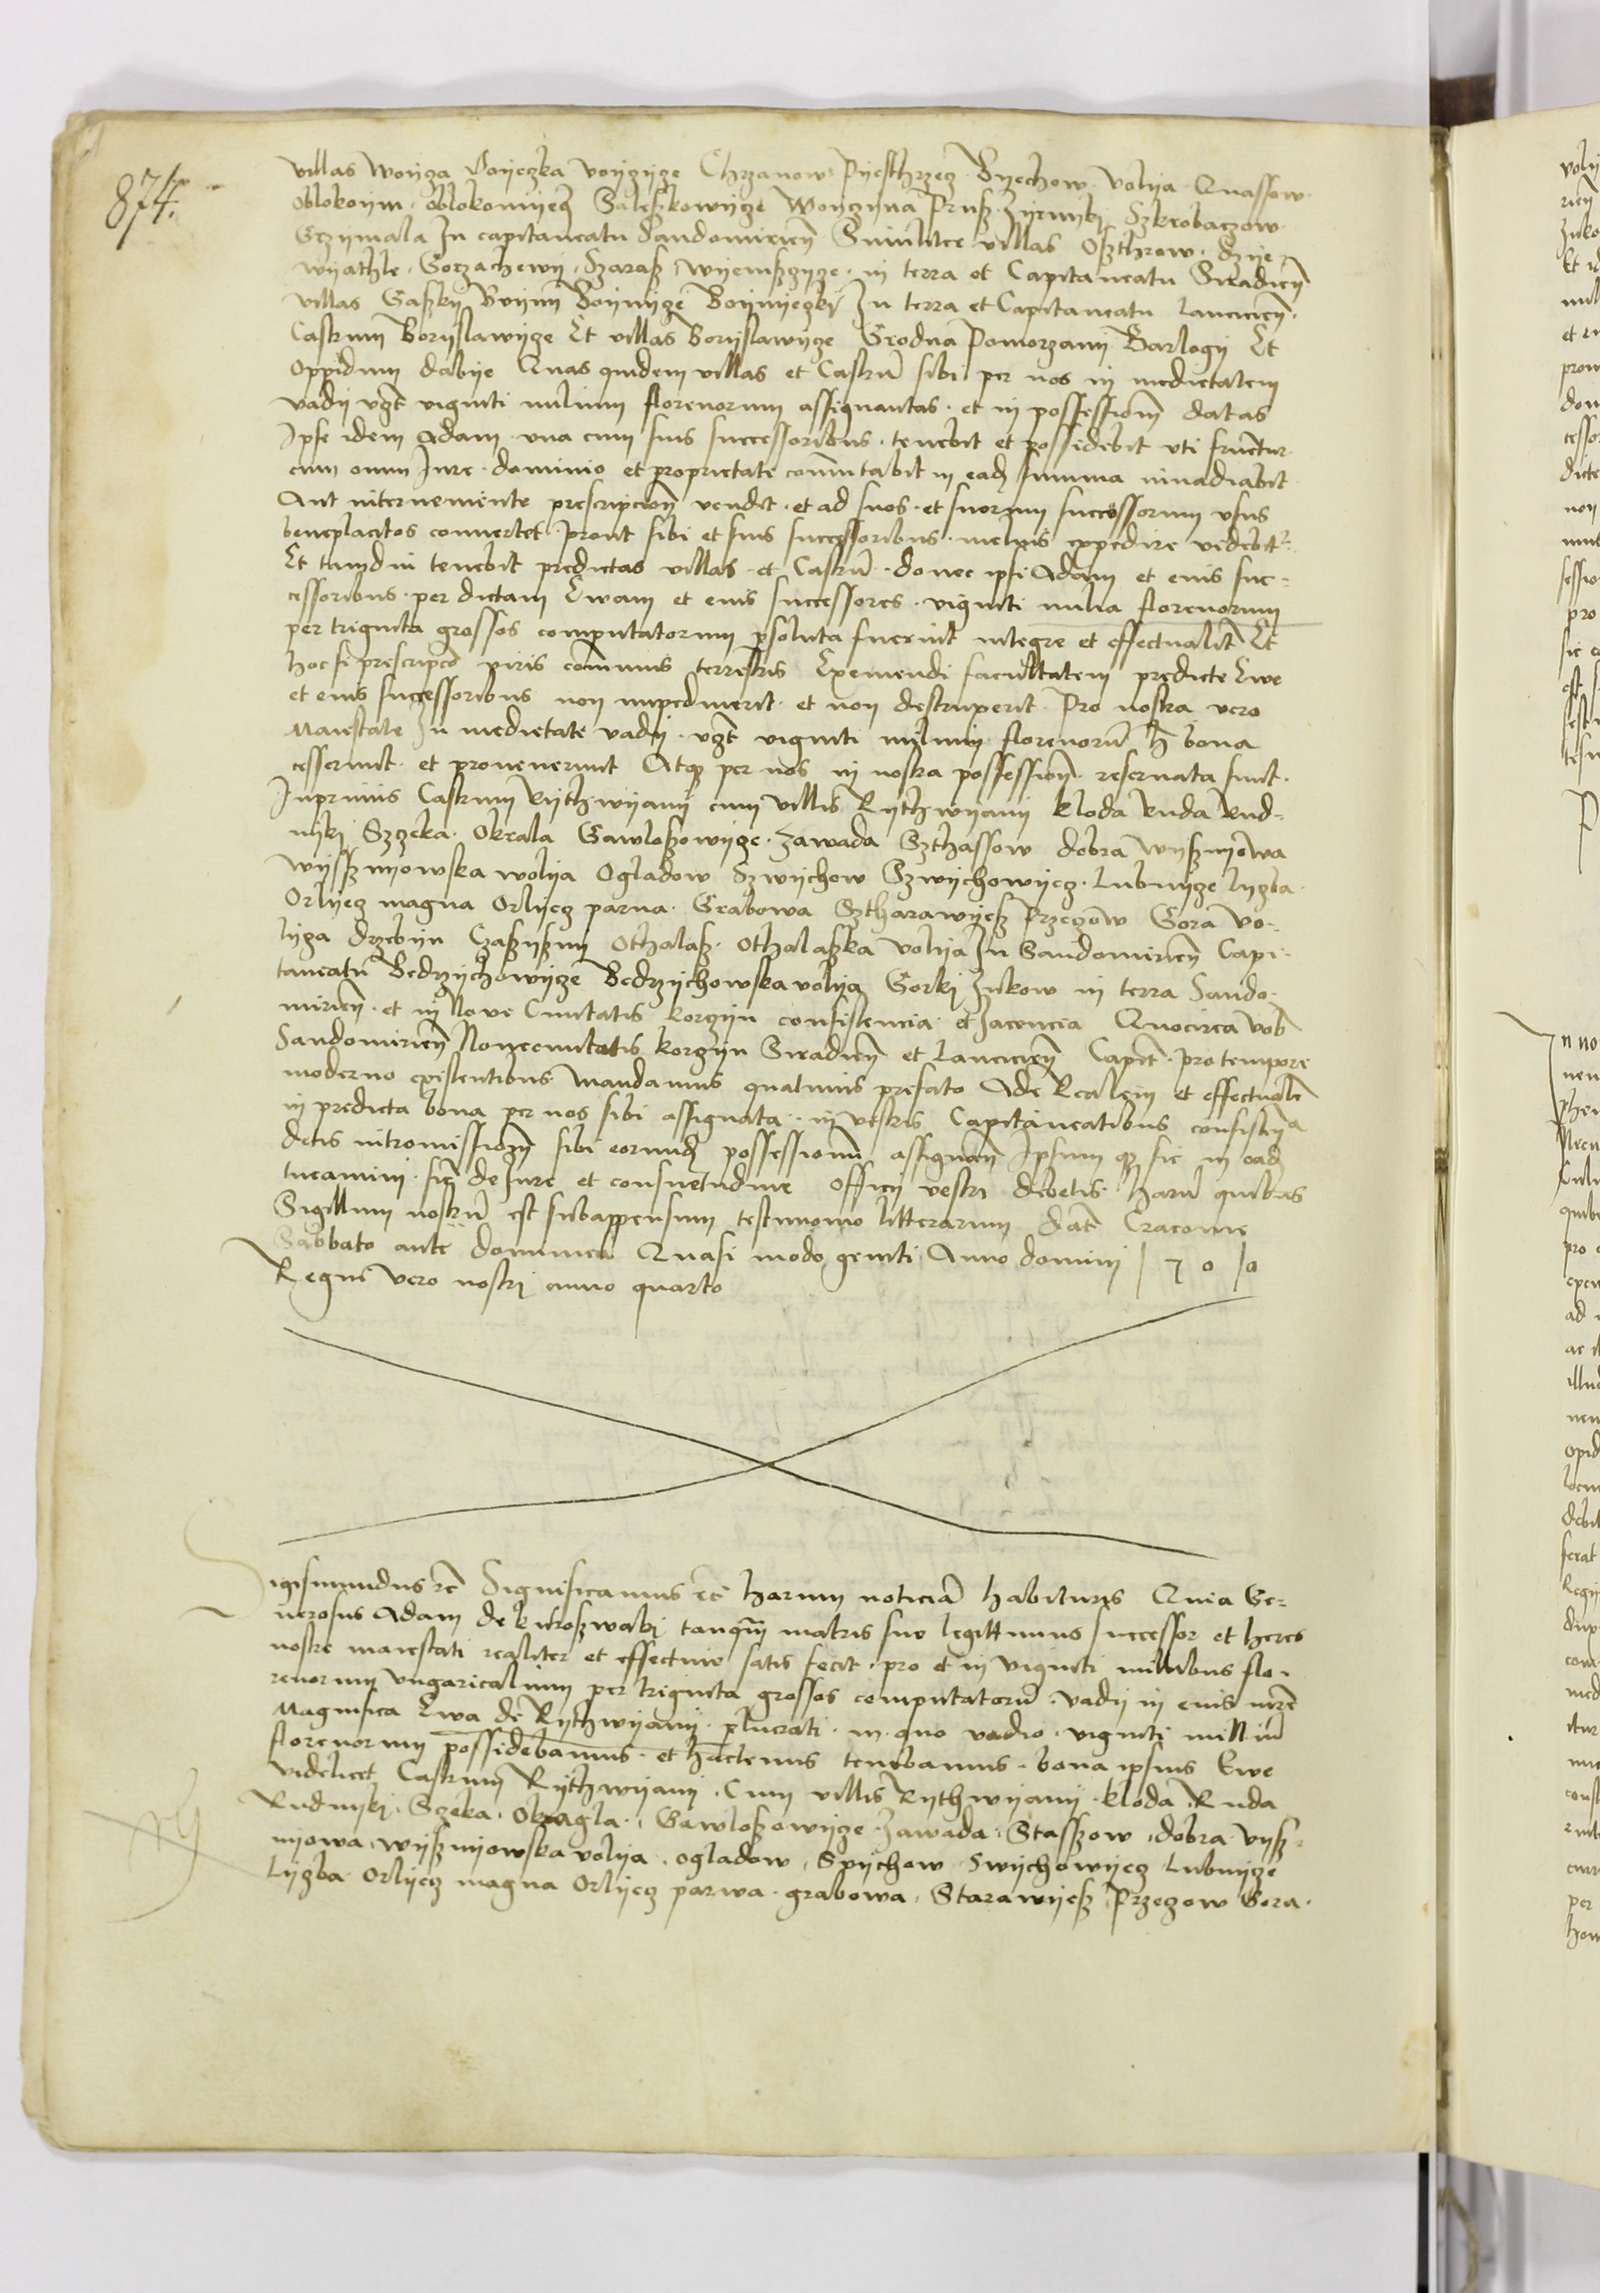 874.
villas Woyga Voyeczka voyczycze Chrzanow Pyesthrzecz Byechow Volija Quassow
Oblokoym oblokomyecz Saleszkowycze Woyczyna Prusz Zyrnyky Szkrobaczow
Grzymala In capitaneatu Sandomirien Similiter villas Oszthrow dzye
wyathle Gorzachewy Szarasz wyemszycze in terra et Capitaneatu Siradien
villas Gaszky Boymycze In terra et Capitaneatu Lancicien
Castrum Boryslawycze Et villas Boryslawycze Grodna Pomorzany Barlogy Et
Oppidum dabye Quas quidem villas et Castrum sibi per nos in medietatem
vadii viginti milium florenorum assignatas et in possessionem datas
Ipse idem Adam una cum suis successoribus tenebit et possidebit uti fructur
cum omni Iure dominio et proprietate commutabit in eadem summa invadiabit
Aut interveniente prescripcion vendet et ad suos et suorum successorum usus
beneplacitos convertet prout sibi et suis successoribus melius expedire videbit
Et tamdiu tenebit predictas villas et Castrum donec ipsi Adam et eius suc-
cessoribus per dictam Ewam et eius successores viginti milia florenorum
per triginta grossos computatorum persoluta fuerint integre et effectualiter Et
hoc si prescripcio iuris communis terrestris Exemendi facultatem predicte Ewe
et eius successoribus non impedimerit et non destruxerit Pro nostra vero
Maiestate In medietate vadii viginti milium florenorum bona
cesserunt et provenerunt Atque per nos in nostra possession reservata sunt
Inprimis Castrum Rythwyany cum villis Rythwyany kloda Ruda Rud-
nyky Szczeka Okrala Gawloszowycze Zawada Szthassow dobra wyszmyowa
wyszmyowska wolya Ogladow Szwychow Szwychowyecz Lubnycze lyzba
Orlyecz magna Orlyecz parva Grabowa Sztharawyesz Przeczow Gora Vo-
lycza drzebyn Othalasz Othalaszka volya In Sandomirien Capi-
taneatu Bedrzychowycze Bedrzychowska volya Gorky Zukow in terra Sando-
mirien et in Nove Civitatis korczyn consistencia et Iacencia Quocirca vob
Sandomirien Novecivitatis korczyn Siradien et Lancicien Capit pro tempore
moderno existentibus Mandamus quatinus prefato Ade Realem et effectualem
in predicta bona per nos sibi assignata in vestris Capitaneatibus consisten
detis intromissionem sibi eorundem possessionem assignan Ipsum que sic in eadem
tueamini sic de Iure et consuetudine officii vestri debetis harum quibus
Sigillum nostrum est subappensum testimonio litterarum dat Cracovie
Sabbato ante dominica Quasi modo geniti Anno domini 1510
Regni vero nostri anno quarto
Sigismundus etc Significamus etc harum noticiam habituris Quia Ge-
nerosus Adam de kuroszwaky tanquam matris sue legittimus successor et heres
nostre maiestati realiter et effective satis fecit pro et in viginti milibus flo-
renorum vngaricalium per triginta grossos computatorum vadii in eius
Magnifica Ewa de Rythwyany plucrati in quo vadio viginti millium
florenorum possidebamus et hactenus tenebamus bona ipsius Ewe
videlicet Castrum Rythwyany Cum villis Rythwyany kloda Ruda
Rudnyky Szeka Okragla Gawloszowycze Zawada Stasszow dobra vysz-
myowa wyszmyowska volya ogladow Spychow Swychowyecz Lubnycze
Lyzba Orlyecz magna Orlyecz parwa grabowa Starawyesz Przeczow Gora